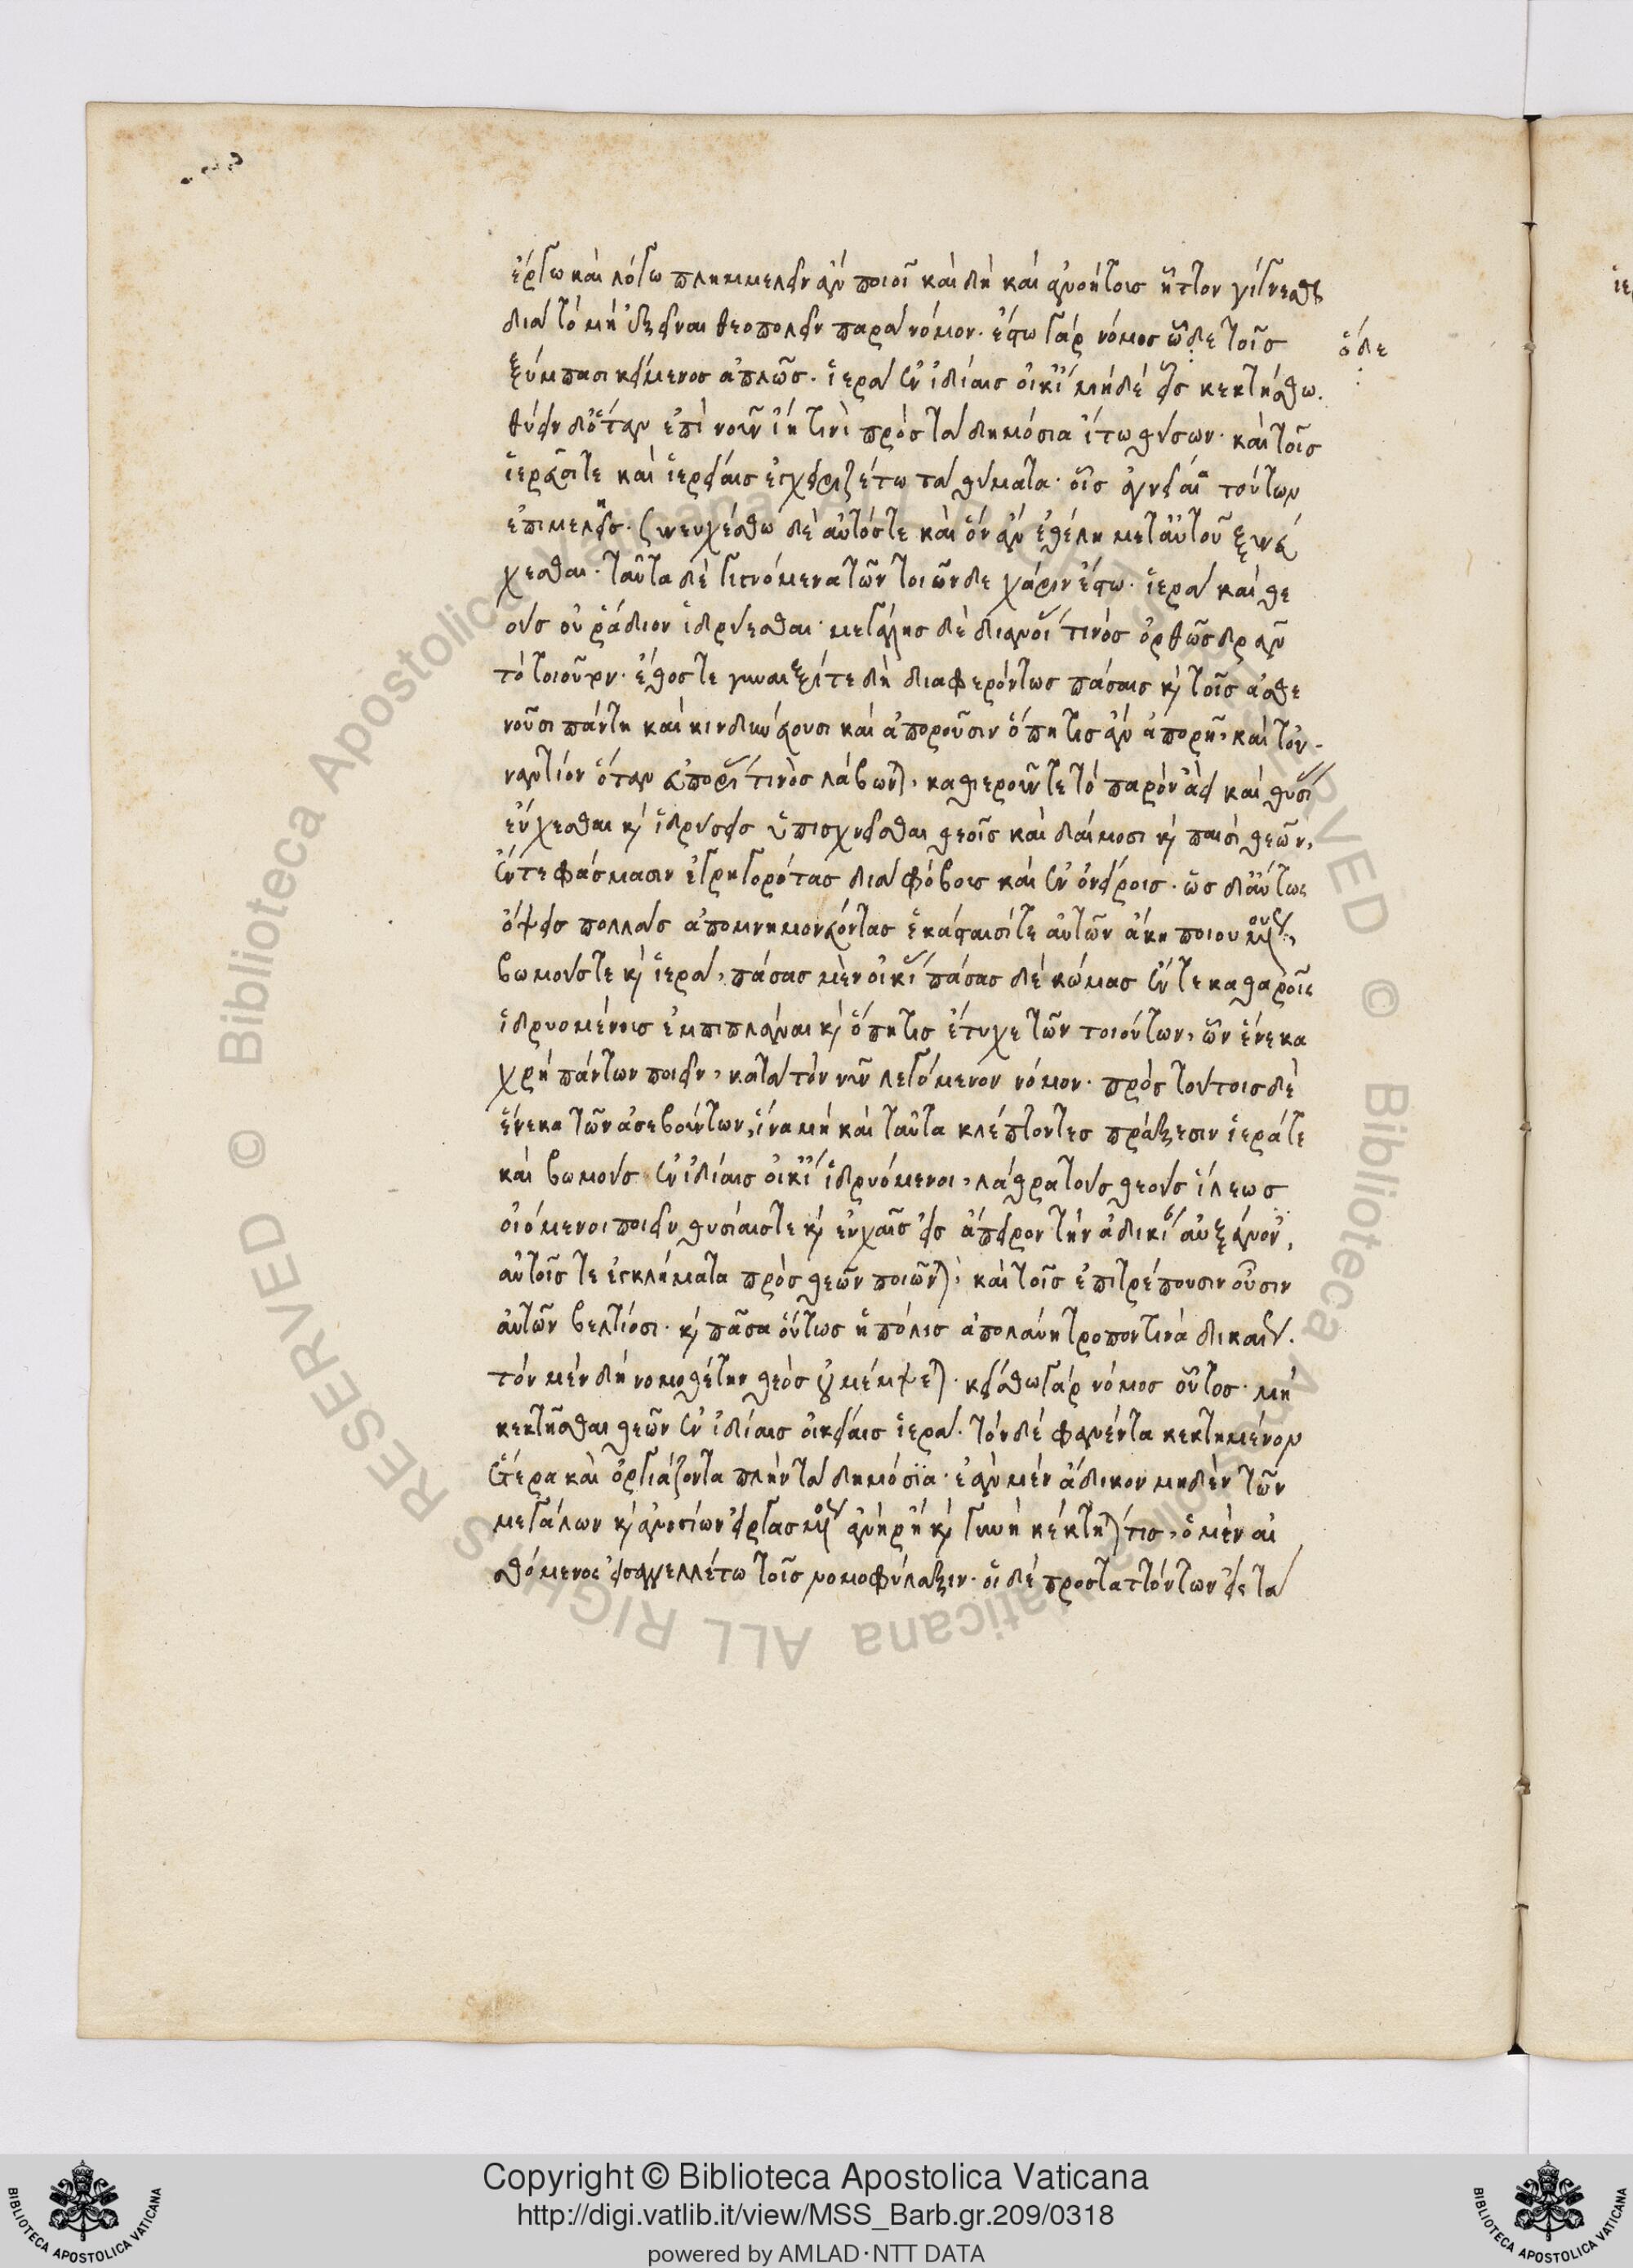 ἔργω καὶ λόγω πλημμελεῖν ἂν ποιοῖ καὶ δὴ καὶ ἀνοήτοισ ἧττον γίγνεσθαι
διὰ τὸ μὴ ἐξεῖναι θεοπολεῖν παρὰ νόμον. ἔστω γὰρ νόμος ὧδε τοῖσ
ὅδε
ξύμπασι κείμενοσ ἁπλῶσ. ἱερὰ ἐν ἰδίαισ οἰκίαις μηδὲ εἷς κεκτήσθω.
θύειν δ᾽ ὅταν ἐπὶ νοῦν ἴῃ τινὶ πρὸς τὰ δημόσια ἴτω θύσων. καὶ τοῖσ
ἱερεῦσί τε καὶ ἱερείαισ ἐγχειριζέτω τὰ θύματα. οἷσ ἁγνεία τούτων
ἐπιμελὴς. συνευχέσθω δὲ αὐτόσ τε καὶ ὃν ἂν ἐθέλῃ μετ᾽ αὐτοῦ ξυνεύ
χεσθαι. ταῦτα δὲ γιγνόμενα τῶν τοιῶνδε χάριν ἔστω. ἱερὰ καὶ θε
οὺσ οὐ ῥάδιον ἱδρύεσθαι. μεγάλησ δὲ διανοίας τινὸσ ὀρθῶσ δρᾶν
τὸ τοιοῦτον. ἔθοσ τε γυναιξί τε δὴ διαφερόντωσ πάσαισ καὶ τοῖσ ἀσθε
νοῦσι πάντη καὶ κινδυνεύουσι καὶ ἀποροῦσιν ὅπη τισ ἂν ἀπορῇ, καὶ τοὐ-
ναντίον ὅταν εὐπορίας τινὸσ λάβωνται, καθιεροῦν τε τὸ παρὸν ἀεὶ καὶ θυσίας
εὔχεσθαι καὶ ἱδρύσεισ ὑπισχνεῖσθαι θεοῖσ καὶ δαίμοσι καὶ παισὶ θεῶν,
ἔν τε φάσμασιν ἐγρηγορότασ διὰ φόβουσ καὶ ἐν ὀνείροισ. ὣσ δ᾽ αὔτωσ
ὄψεισ πολλὰσ ἀπομνημονεύοντασ ἑκάσταισί τε αὐτῶν ἄκη ποιουμένους,
βωμούσ τε καὶ ἱερὰ, πάσασ μὲν οἰκίας πάσασ δὲ κώμασ ἔν τε καθαροῖσ
ἱδρυομένουσ ἐμπιπλάναι καὶ ὅπη τισ ἔτυχε τῶν τοιούτων, ὧν ἕνεκα
χρὴ πάντων ποιεῖν, κατὰ τὸν νῦν λεγόμενον νόμον. πρὸσ τούτοισ δὲ
ἕνεκα τῶν ἀσεβούντων, ἵνα μὴ καὶ ταῦτα κλέπτοντεσ πράξεσιν ἱερά τε
καὶ βωμοὺσ ἐν ἰδίαισ οἰκίαις ἱδρυόμενοι, λάθρα τοὺσ θεοὺσ ἵλεωσ
οἰόμενοι ποιεῖν θυσίαισ τε καὶ εὐχαῖσ εἰς ἄπειρον τὴν ἀδικίαν αὐξάνοντες,
αὑτοῖσ τε ἐγκλήματα πρὸσ θεῶν ποιῶνται, καὶ τοῖσ ἐπιτρέπουσιν οὖσιν
αὐτῶν βελτίοσι. καὶ πᾶσα οὕτωσ ἡ πόλισ ἀπολαύῃ τρόπον τινὰ δικαίως.
τὸν μὲν δὴ νομοθέτην θεὸσ οὐ μέμψεται. κείσθω γὰρ νόμοσ οὗτοσ. μὴ
κεκτῆσθαι θεῶν ἐν ἰδίαισ οἰκείαισ ἱερὰ. τὸν δὲ φανέντα κεκτημένον
ἕτερα καὶ ὀργιάζοντα πλὴν τὰ δημόσϊα. ἐὰν μὲν ἄδικον μηδὲν τῶν
μεγάλων καὶ ἀνοσίων εἰργασμένος ἀνὴρ ἢ καὶ γυνὴ κέκτηταί τισ, ὁ μὲν αἰ
σθόμενος εἰσαγγελλέτω τοῖσ νομοφύλαξιν. οἱ δὲ προσταττόντων εἰς τὰ